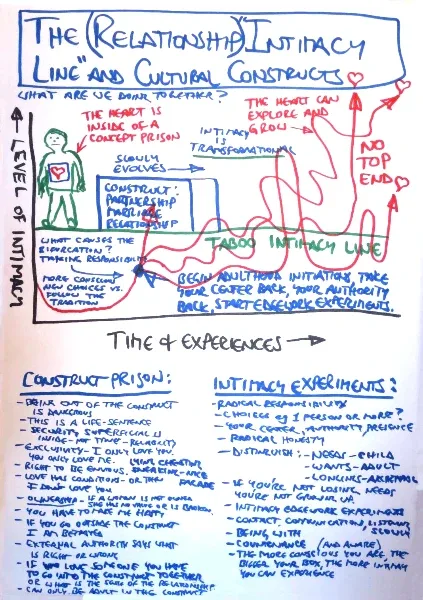 THE (RELATIONSHIP) "INTIMACY
LINE" AND CULTURAL CONSTRUCTS
WHAT ARE WE DOING TOGETHER?
THE HEART IS
INSIDE OF A
CONCEPT PRISON
THE HEART CAN
EXPLORE AND
GROW
INTIMACY
IS
TRANSFORMATIONAL
SLOWLY
EVOLVES
NO
TOP
END
LEVEL OF INTIMACY
CONSTRUCT:
PARTNERSHIP
MARRIAGE
RELATIONSHIP
TABOO INTIMACY LINE
WHAT CAUSES THE
BIFURCATION?
TAKING RESPONSIBILITY
MORE CONSCIOUS
NEW CHOICES VS.
FOLLOW THE
TRADITION
BEGIN ADULTHOOD INITIATIONS, TAKE
YOUR CENTER BACK, YOUR AUTHORITY
BACK, START EDGEWORK EXPERIMENTS.
TIME & EXPERIENCES
CONSTRUCT PRISON:
- BEING OUT OF THE CONSTRUCT
IS DANGEROUS
- THIS IS A LIFE-SENTENCE
- SECURITY, SUPERFICIAL IS
INSIDE - NOT TIME -
- EXCLUSIVITY - I ONLY LOVE YOU.
YOU ONLY LOVE ME. LYING, CHEATING
RIGHT TO BE ENVIOUS,
- LOVE HAS CONDITIONS - OR THEN FACADE
I DON'T LOVE YOU
- OWNERSHIP - IF A WOMAN IS NOT OWNED
SHE HAS NO VALUE OR IS BROKEN
- YOU HAVE TO MAKE ME HAPPY
- IF YOU GO OUTSIDE THE CONSTRUCT
I AM BETRAYED
- EXTERNAL AUTHORITY SAYS WHAT
IS RIGHT OR WRONG
- IF YOU LOVE SOMEONE YOU HAVE
TO GO INTO THE CONSTRUCT TOGETHER
OR WHAT IS THE SENSE OF THE RELATIONSHIP
- CAN ONLY BE ADULT IN THE CONSTRUCT
INTIMACY EXPERIMENTS:
- RADICAL RESPONSIBILITY
- CHOICES OF 1 PERSON OR MORE?
- YOUR CENTER, AUTHORITY, PRESENCE
- RADICAL HONESTY
- DISTINGUISH: - NEEDS - CHILD
- WANTS - ADULT
- LONGINGS - ARCHETYPAL
- IF YOU'RE NOT LOSING NEEDS
YOU'RE NOT GROWING UP
- INTIMACY EDGEWORK EXPERIMENTS
- CONTACT, COMMUNICATION, LISTENING,
SLOWLY
- BEING WITH
- (AND AWARE)
- THE MORE CONSCIOUS YOU ARE, THE
BIGGER YOUR BOX, THE MORE INTIMACY
YOU CAN EXPERIENCE